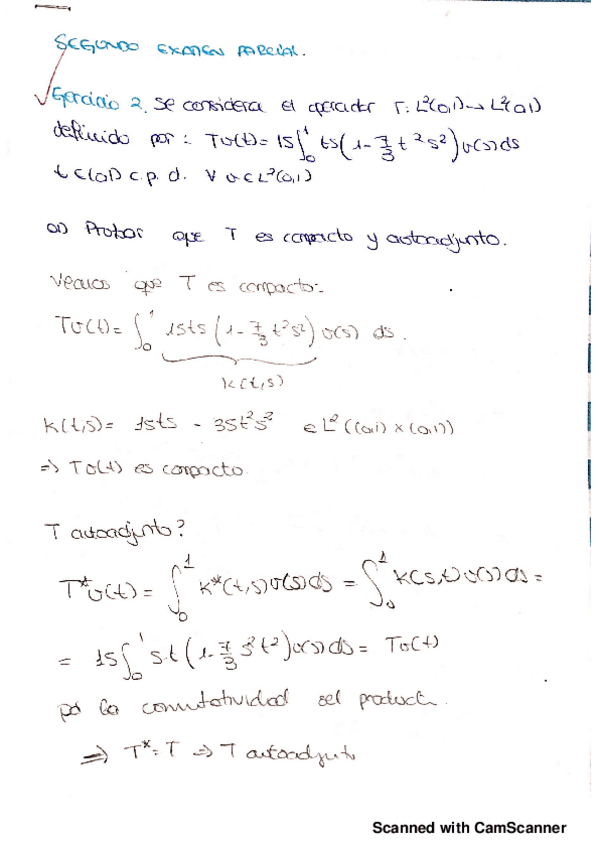 SEGUNDO EXAMEN PARCIAL.
Ejercicio 2. Se considera el operador T: L²(0,1) → L²(0,1)
definido por: Tv(t) = 15∫₀¹ ts(1 - 7/3 t²s²)v(s)ds
t ∈ (0,1) c.p.d. ∀ v ∈ L²(0,1)
a) Probar que T es compacto y autoadjunto.
Veamos que T es compacto:
Tv(t) = ∫₀¹ 15ts(1 - 7/3 t²s²)v(s) ds.
k(t,s)
k(t,s) = 15ts - 35t³s³ ∈ L²((0,1)×(0,1))
⇒ Tv(t) es compacto.
T autoadjunto?
T*v(t) = ∫₀¹ k*(t,s)v(s)ds = ∫₀¹ k(s,t)v(s)ds =
= 15∫₀¹ s·t(1 - 7/3 s²t²)v(s)ds = Tv(t)
por la conmutatividad del producto.
⇒ T* = T ⇒ T autoadjunto
Scanned with CamScanner